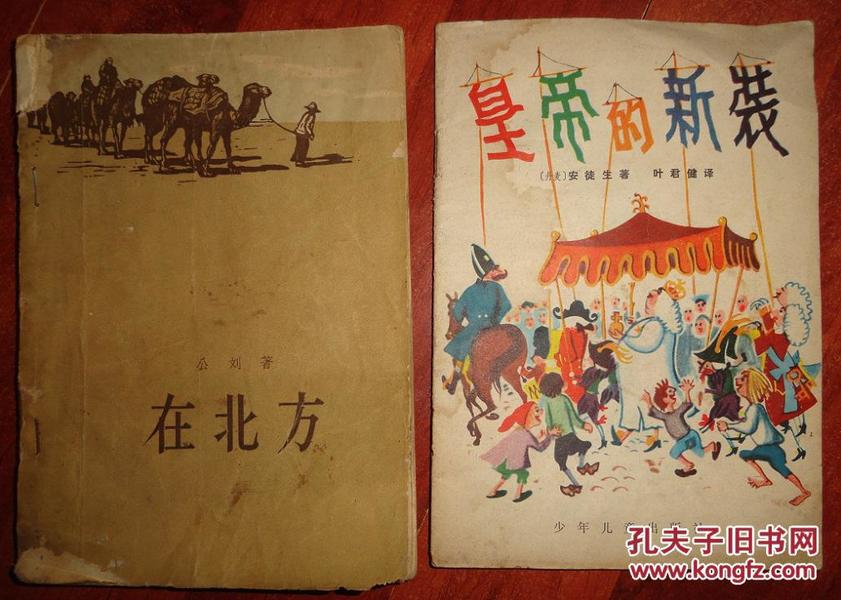 公 刘 著
在北方
皇帝的新裝
〔丹麦〕安徒生著 叶君健译
少年儿童出版社
孔夫子旧书网
www.kongfz.com